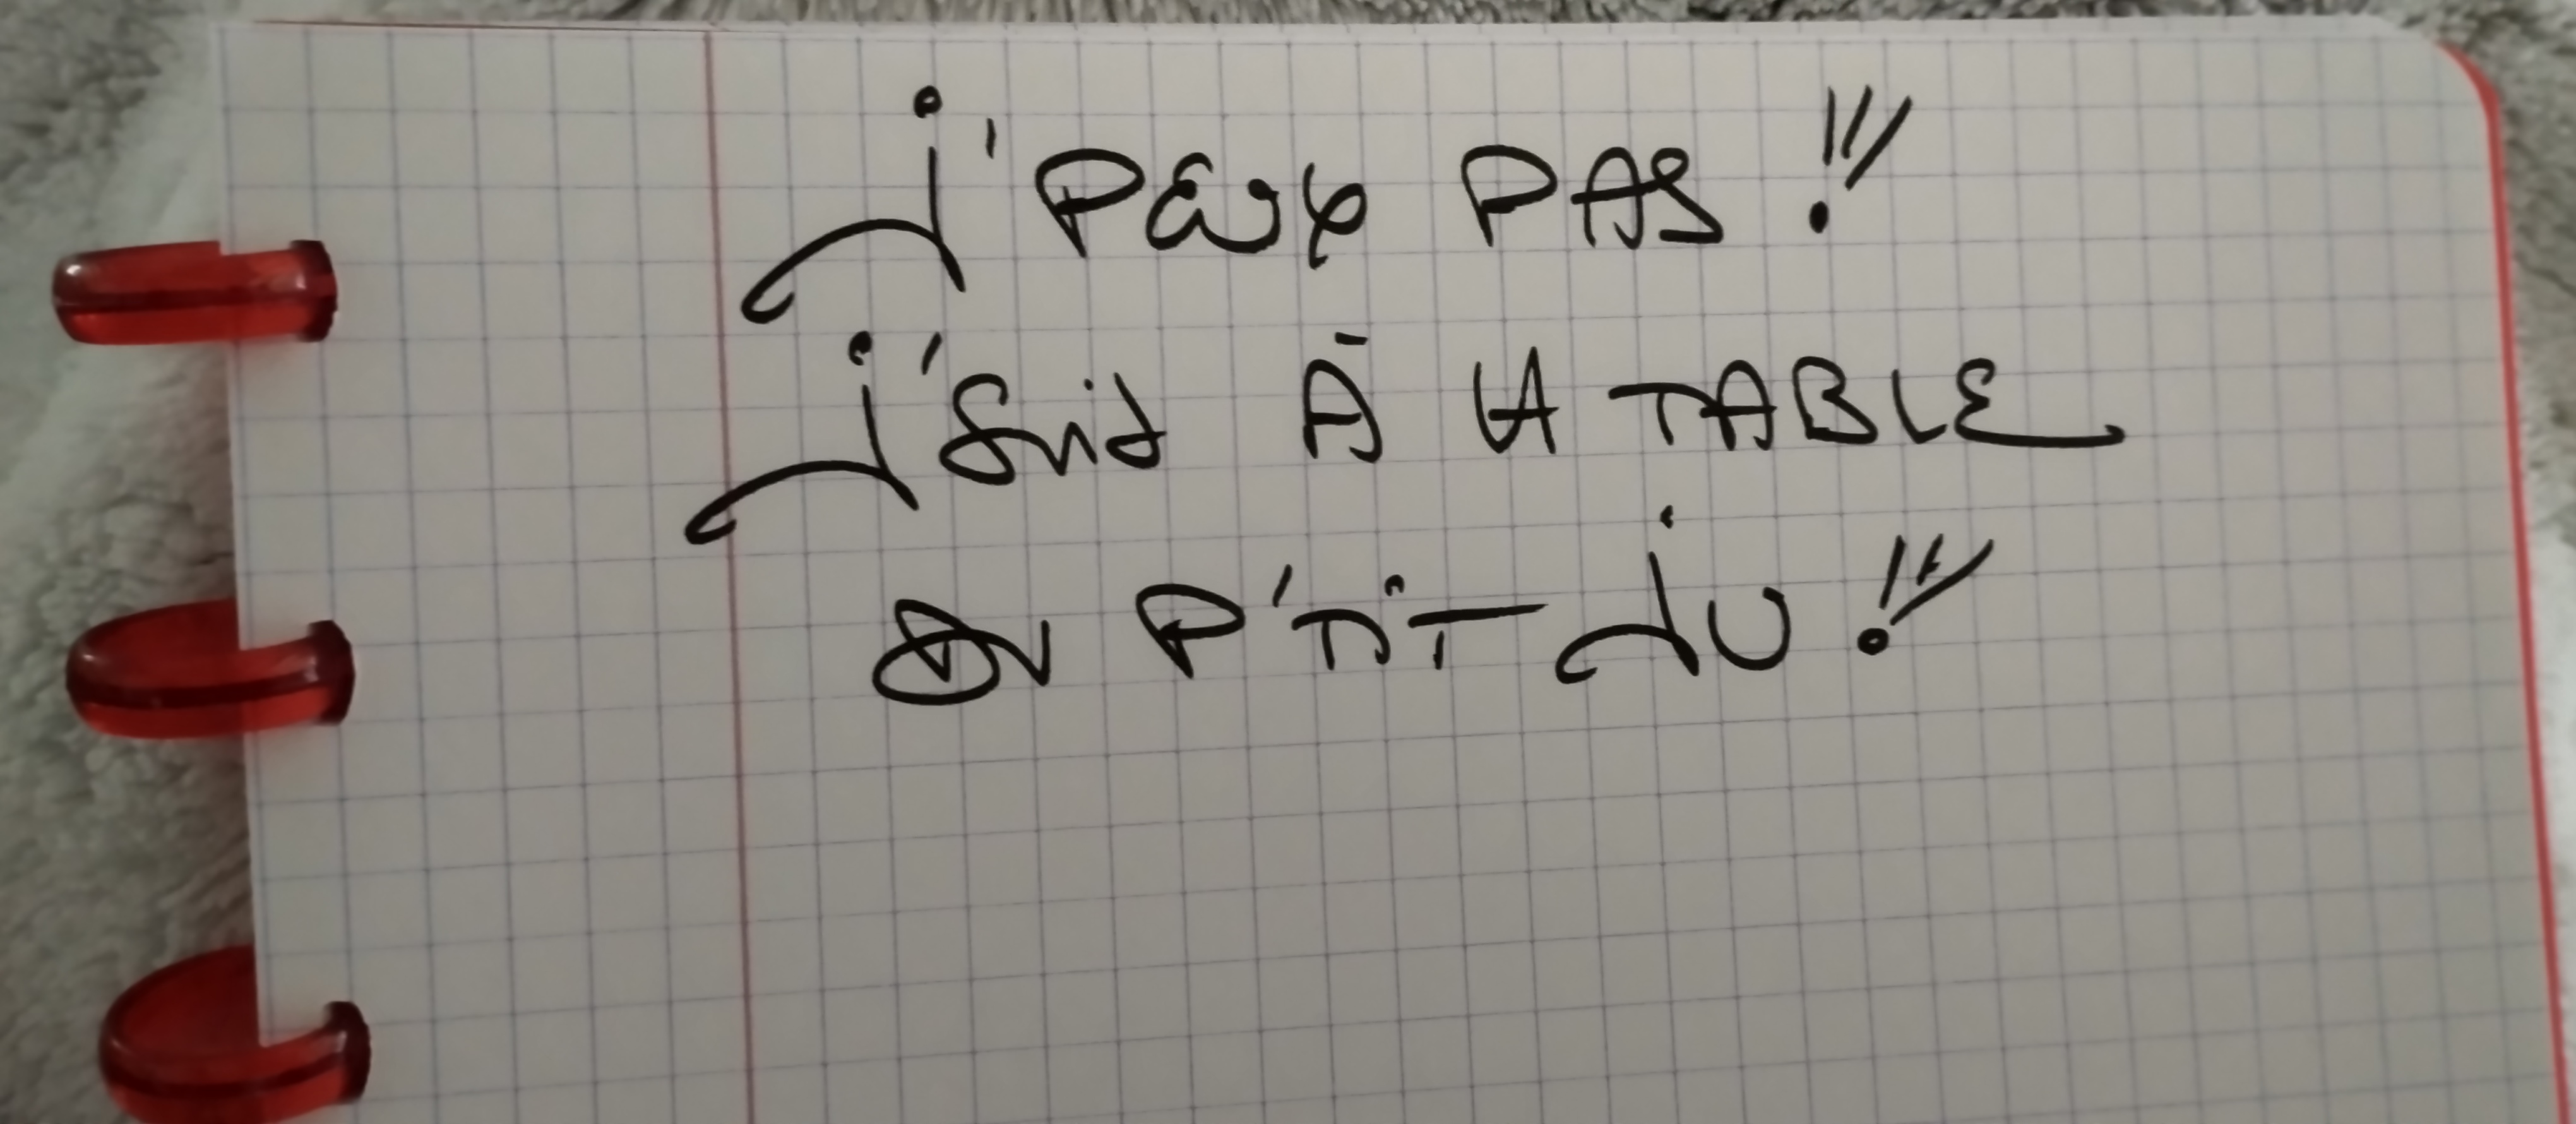 j'PEUX PAS !!!
j'suis À LA TABLE
DU P'TIT JU !!!